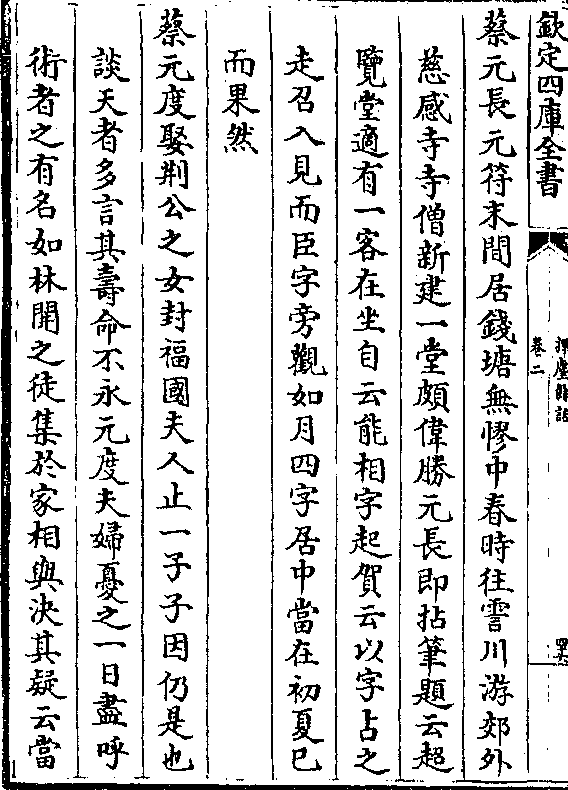 欽定四庫全書
揮麈餘話
卷二
蔡元長元符末間居錢塘無憀中春時往霅川游郊外
慈感寺寺僧新建一堂頗偉勝元長即拈筆題云超
覽堂適有一客在坐自云能相字起賀云以字占之
走召入見而臣字旁觀如月四字居中當在初夏已
而果然
蔡元度娶荆公之女封福國夫人止一子子因仍是也
談天者多言其壽命不永元度夫婦憂之一日盡呼
術者之有名如林開之徒集於家相與決其疑云當